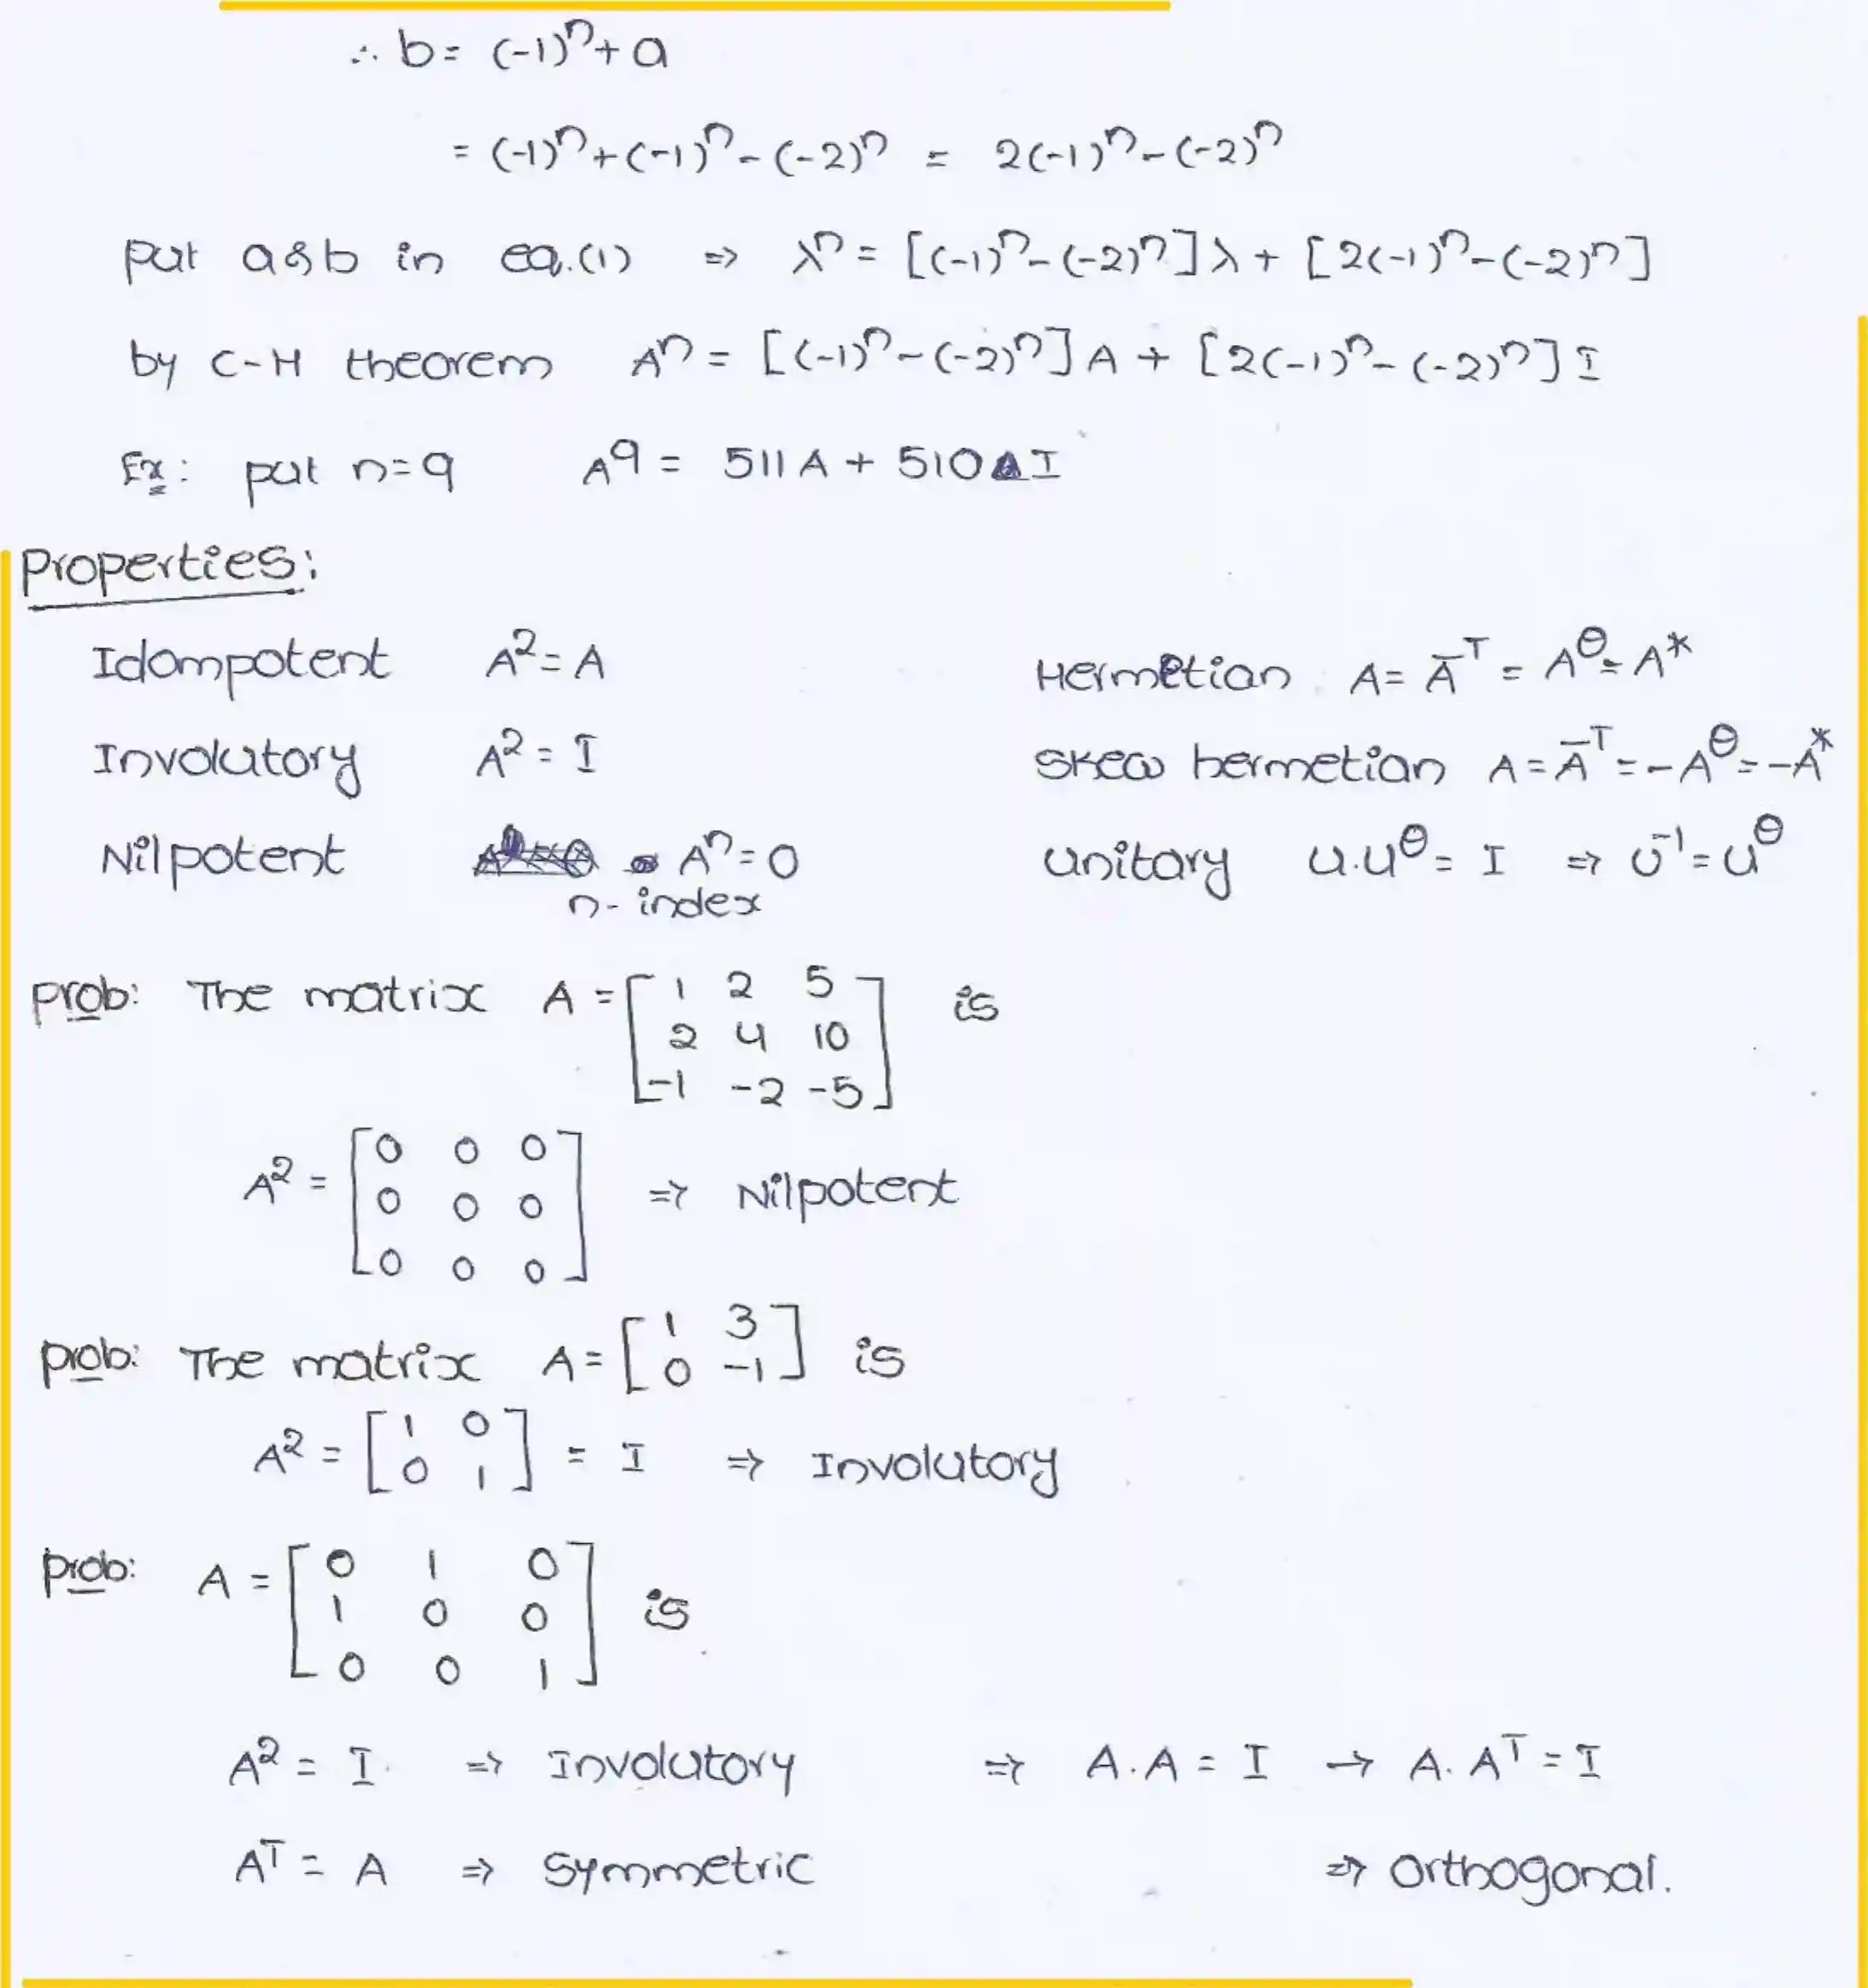 ∴ b = (-1)ⁿ + a
= (-1)ⁿ + (-1)ⁿ - (-2)ⁿ = 2(-1)ⁿ - (-2)ⁿ
put a & b in eq.(1) ⇒ λⁿ = [(-1)ⁿ - (-2)ⁿ]λ + [2(-1)ⁿ - (-2)ⁿ]
by C-H theorem Aⁿ = [(-1)ⁿ - (-2)ⁿ] A + [2(-1)ⁿ - (-2)ⁿ] I
Ex: put n=9 A⁹ = 511 A + 510 I
Properties:
Idompotent A² = A
Hermetian A = Ā^T = A^θ = A*
Involutory A² = I
Skew hermetian A = Ā^T = -A^θ = -A*
Nilpotent Aⁿ = 0
n-index
Unitary U.U^θ = I ⇒ U⁻¹ = U^θ
prob: The matrix A = [1 2 5
2 4 10
-1 -2 -5] is
A² = [0 0 0
0 0 0
0 0 0] ⇒ Nilpotent
prob: The matrix A = [1 3
0 -1] is
A² = [1 0
0 1] = I ⇒ Involutory
prob: A = [0 1 0
1 0 0
0 0 1] is
A² = I. ⇒ Involutory ⇒ A.A = I → A.A^T = I
A^T = A ⇒ Symmetric ⇒ Orthogonal.